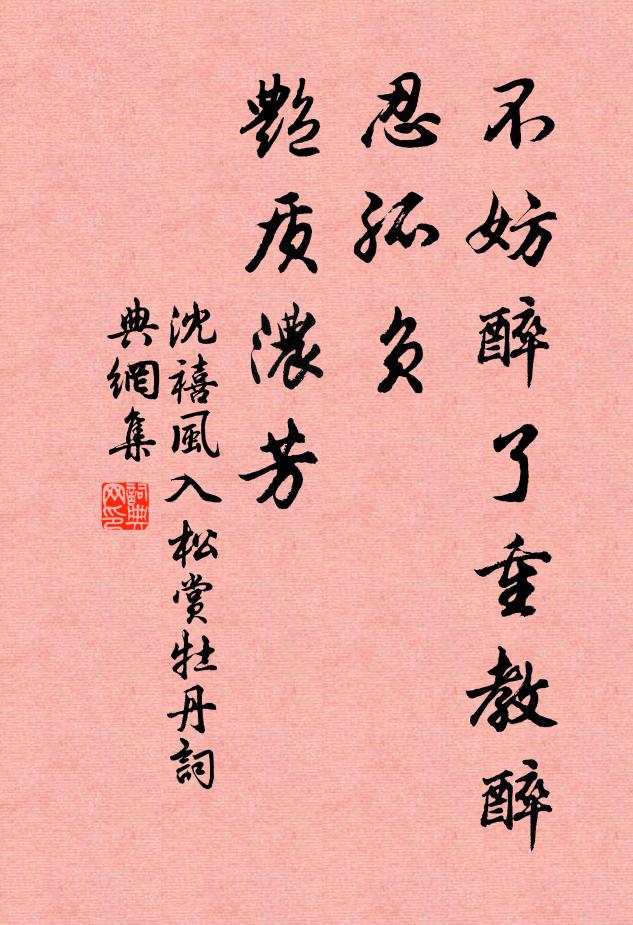 不妨醉了重教醉
忍孤负
艷质濃芳
沈禧風入松賞牡丹詞
典網集
詞典网印